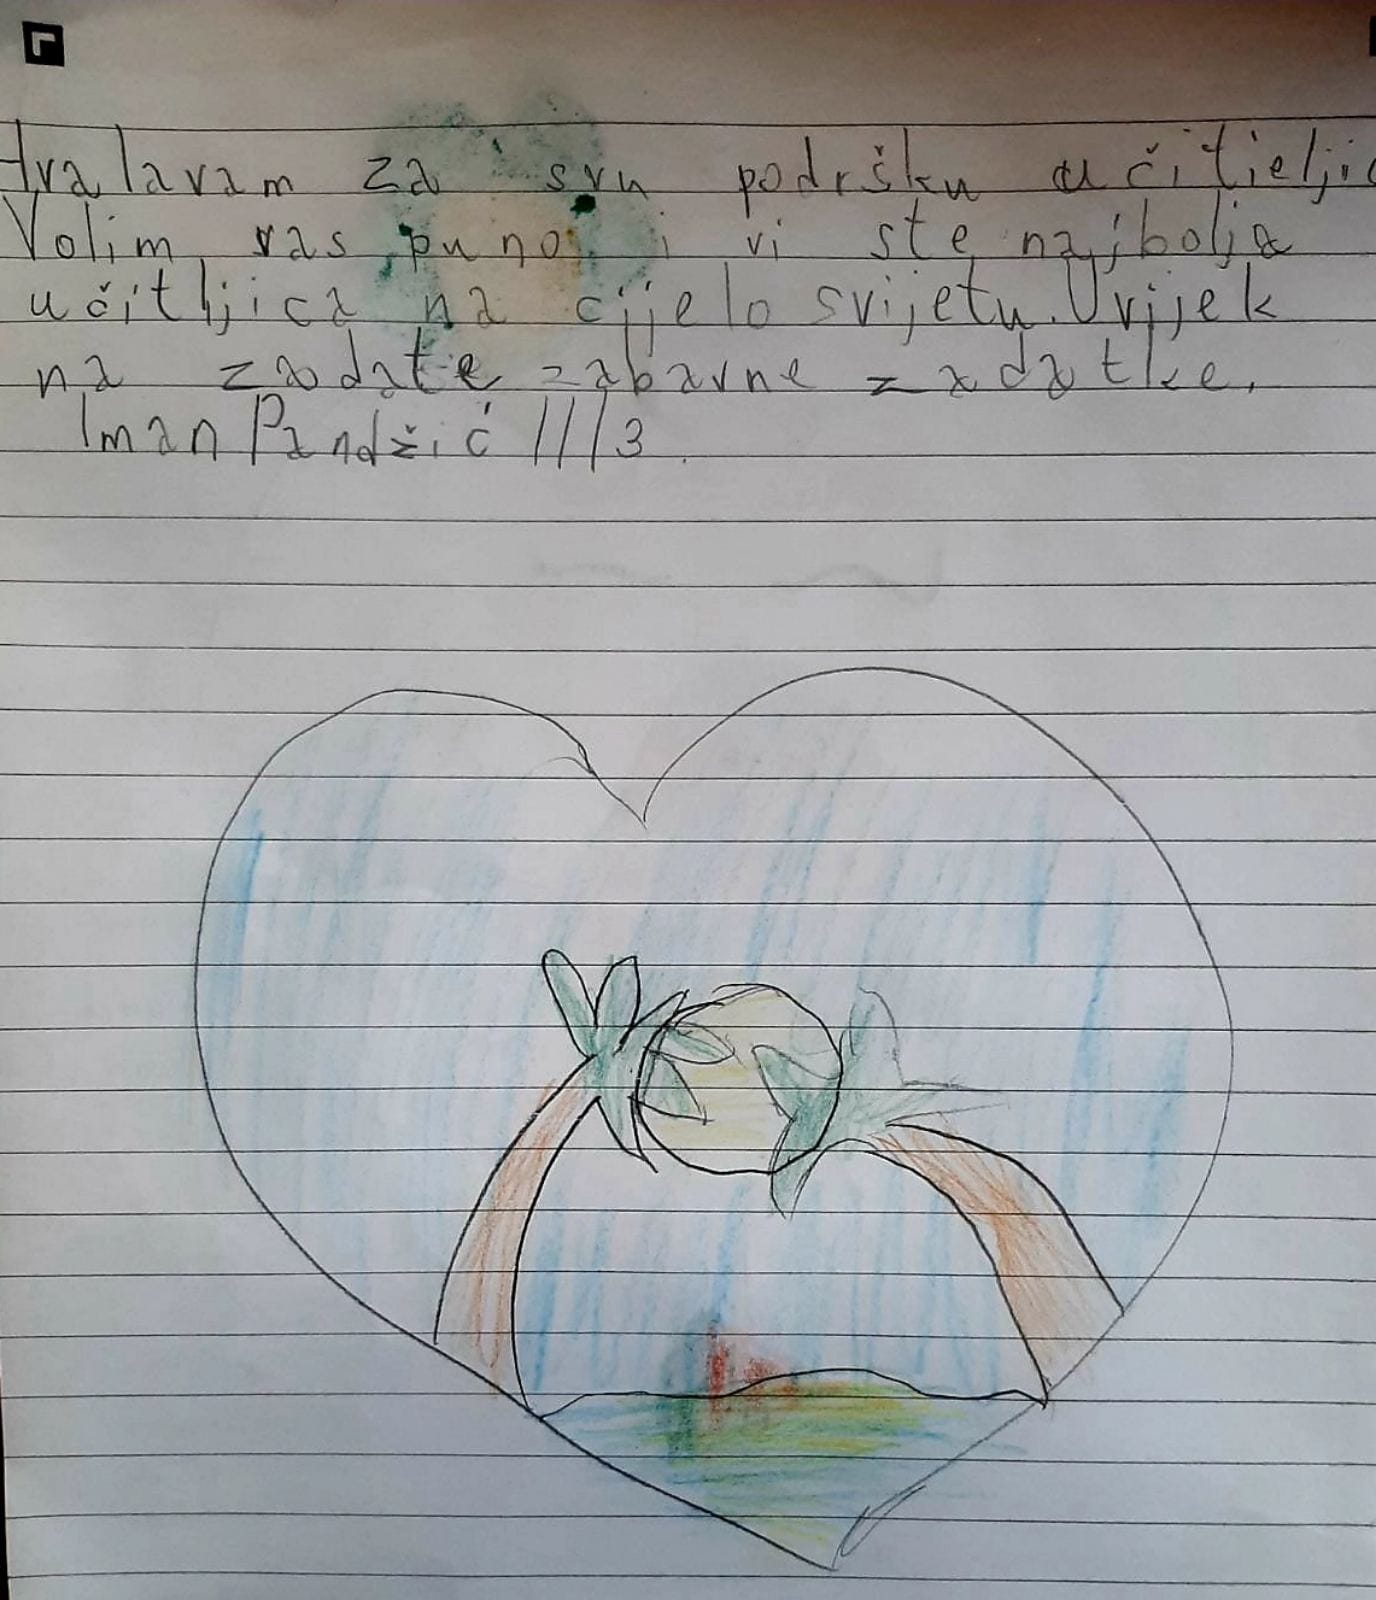 Hvala vam za svu podršku učitjeljic
Volim vas puno i vi ste najbolja
učitljica na cijelo svijetu. Uvijek
na zadate zabavne zadatke.
Iman Pandžić III/3